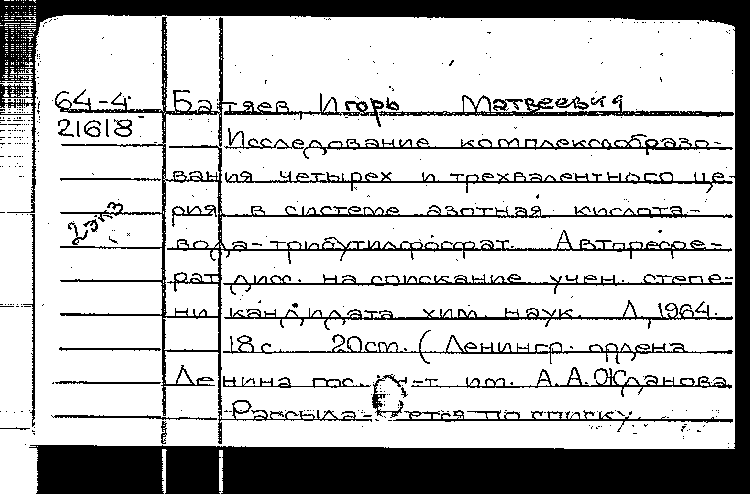 64-4 Батяев, Игорь Матвеевич
21618 Исследование комплексообразо-
вания четырех и трехвалентного це-
рия в системе азотная кислота-
2 экз
вода-трибутилфосфат. Авторефе-
рат дис. на соискание учен. степе-
ни кандидата хим. наук. Л., 1964.
18 с. 20 см. (Ленингр. ордена
Ленина гос. ун-т им. А. А. Жданова
Рассылается по списку.